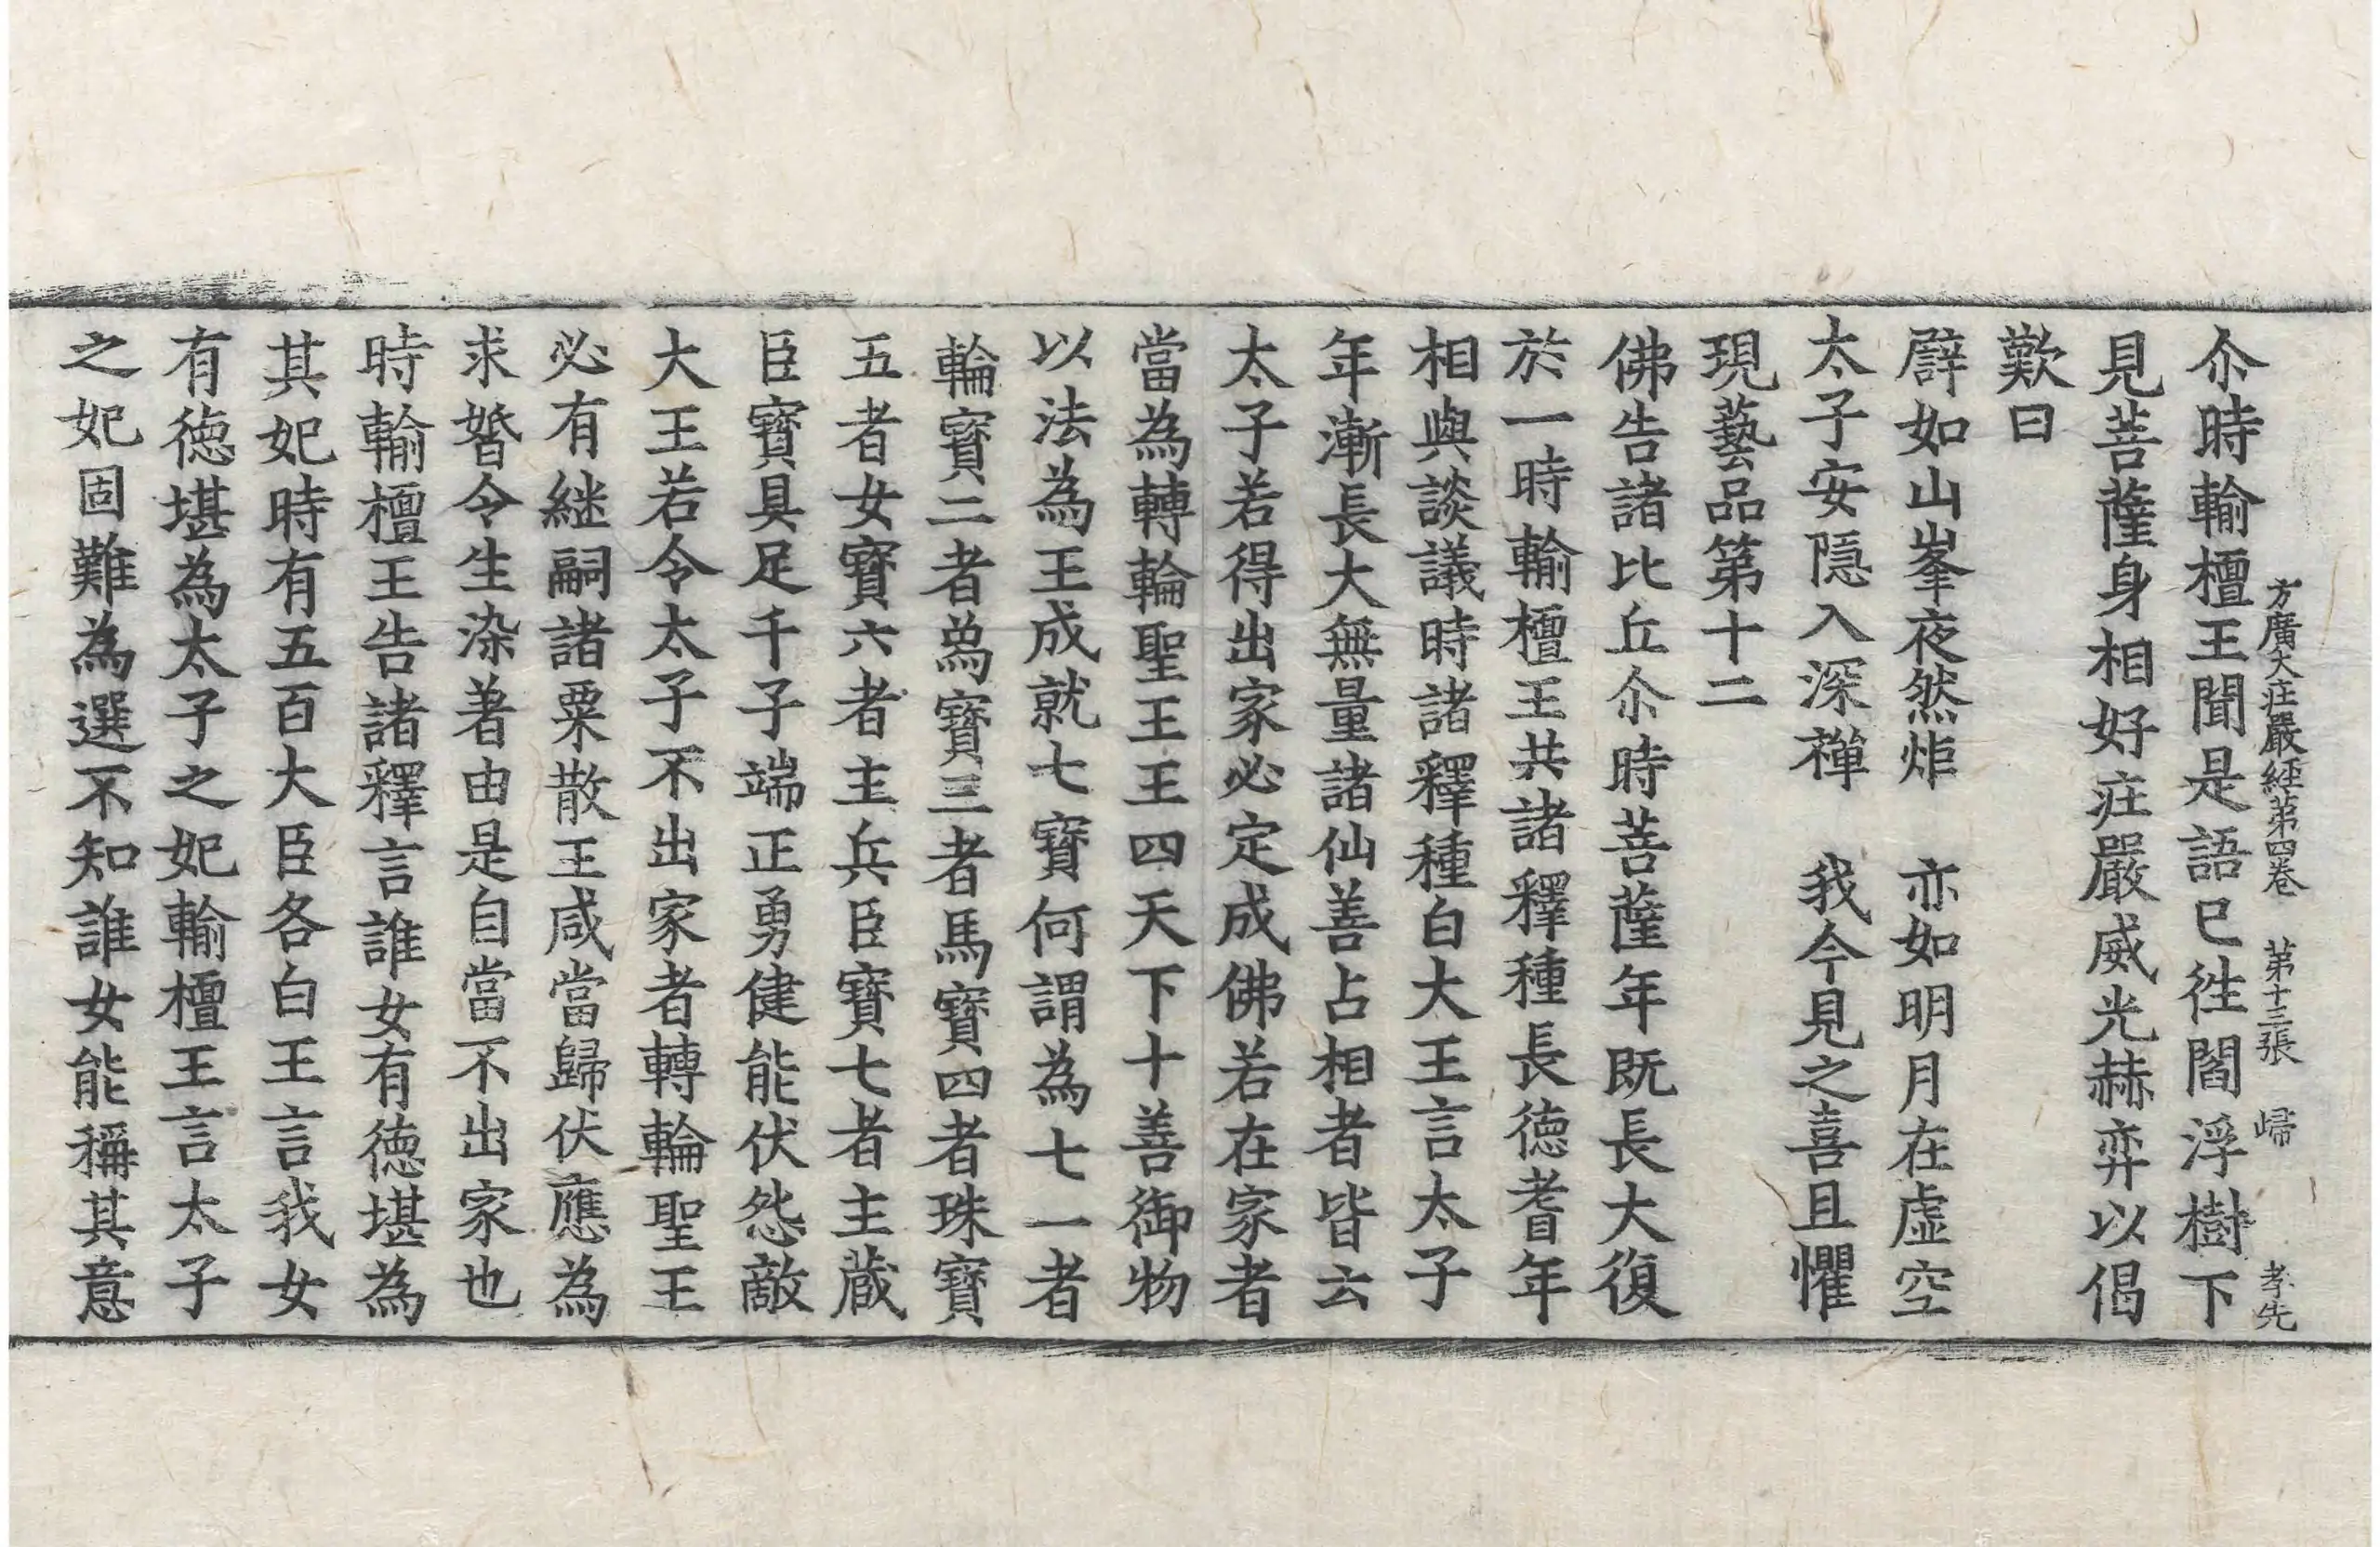 方廣大莊嚴經第四卷 第十三張 歸 孝先
尒時輸檀王聞是語已徃閻浮樹下
見菩薩身相好莊嚴威光赫弈以偈
歎曰
譬如山峯夜然炬 亦如明月在虛空
太子安隠入深禪 我今見之喜且懼
現藝品第十二
佛告諸比丘尒時菩薩年既長大復
於一時輸檀王共諸釋種長徳耆年
相與談議時諸釋種白大王言太子
年漸長大無量諸仙善占相者皆云
太子若得出家必定成佛若在家者
當為轉輪聖王王四天下十善御物
以法為王成就七寶何謂為七一者
輪寶二者為寶三者馬寶四者珠寶
五者女寶六者主兵臣寶七者主蔵
臣寶具足千子端正勇健能伏怨敵
大王若令太子不出家者轉輪聖王
必有継嗣諸粟散王咸當歸伏應為
求婚令生染著由是自當不出家也
時輸檀王告諸釋言誰女有徳堪為
其妃時有五百大臣各白王言我女
有徳堪為太子之妃輸檀王言太子
之妃固難為選不知誰女能稱其意